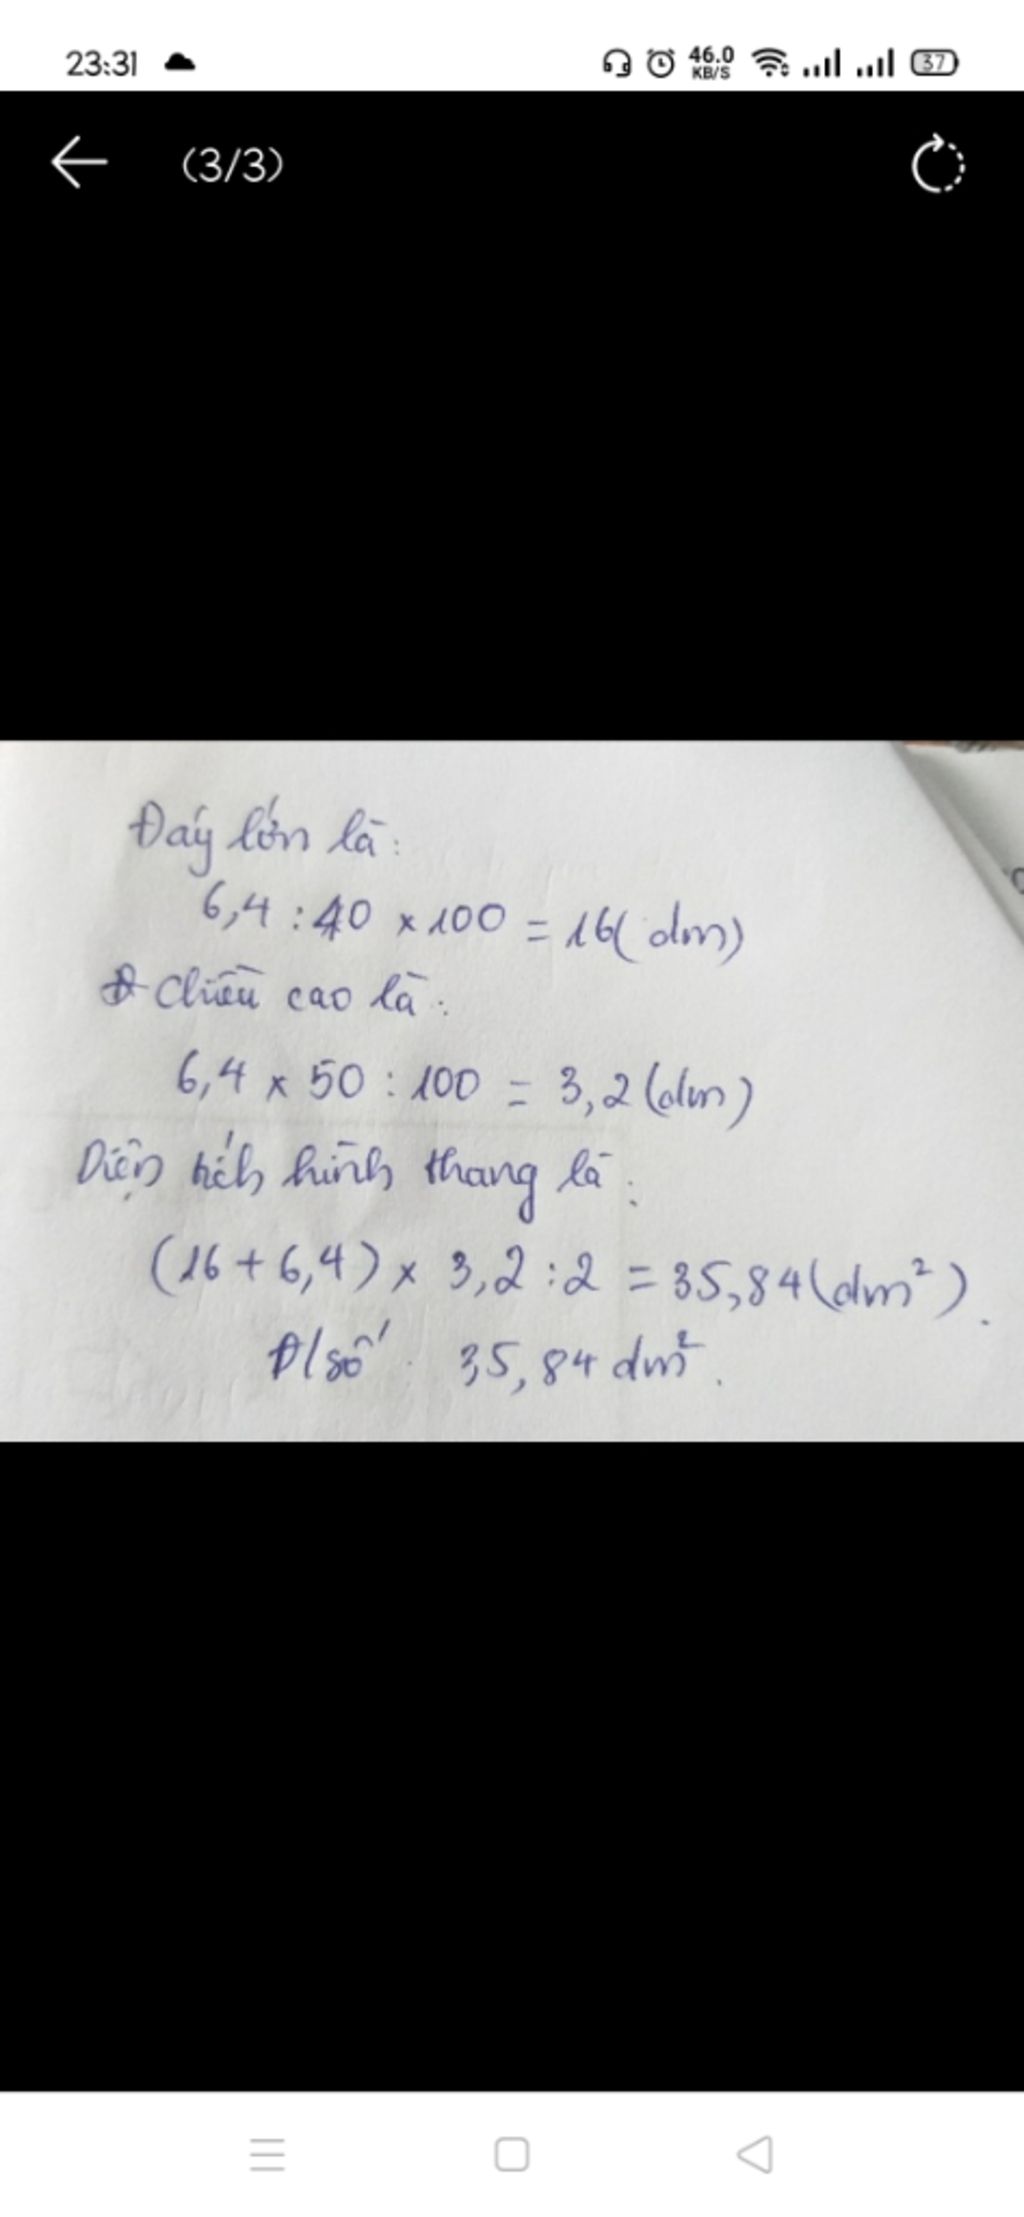 23:31 46.0 KB/S 37
(3/3)
Đáy lớn là:
6,4 : 40 x 100 = 16( dm)
Chiều cao là:
6,4 x 50 : 100 = 3,2 (dm)
Diện tích hình thang là:
(16 + 6,4) x 3,2 : 2 = 35,84 (dm²).
Đ/số: 35,84 dm².